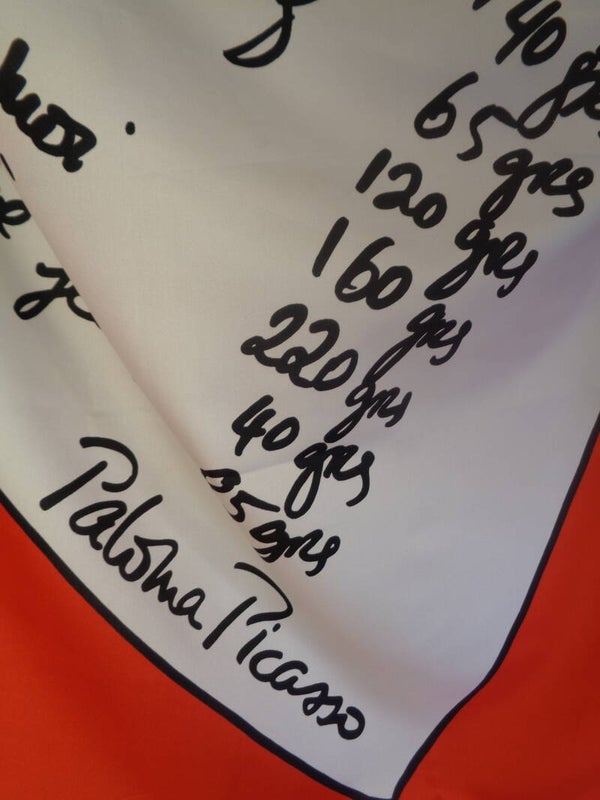 40
65 grs
120 grs
160 grs
220 grs
40 grs
grs
Paloma Picasso